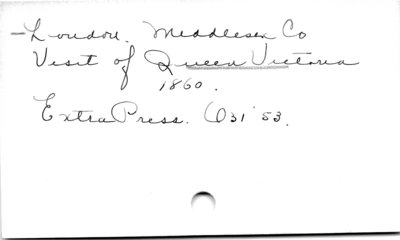 -London. Middlesex Co
Visit of Queen Victoria
1860.
Extra Press. O 31 '53.